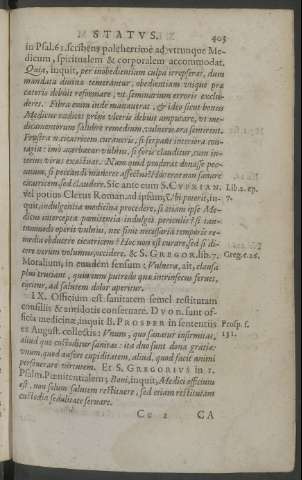 STATVS. 403
in Psal. 61. scribens pulcherrimè ad vtrunque Me-
dicum, spiritualem & corporalem accommodat.
Quia, inquit, per inobedientiam culpa irrepserat, dum
mandata diuina temerantur, obedientiam vsque pec-
catoris debuit reformare, vt seminarium erroris exclu-
deret. Fibra enim inde manauerat, & ideo sicut bonus
Medicus radices prius vlceris debuit amputare, vt me-
dicamentorum salubre remedium, vulneris ora sentirent.
Frustra
interius virus exæstuat. Num quid prodesset donasse pec-
catum, si peccandi maneret affectus? Hoc erat non sanare
cicatricem, sed claudere. Sic ante eum S. CYPRIAN. Lib. 2. ep.
vel potius Clerus Roman. ad ipsum; Vbi poterit, in- 7.
quit, indulgentia medicina procedere, si etiam ipse Me-
dicus intercepta pœnitentia indulget periculis? si tan-
tummodo operit vulnus, nec sinit necessaria temporis re-
media obducere cicatricem? Hoc non est curare, sed si di-
cere verum volumus, occidere, & S. GREGOR. lib. 7. Greg. c. 26.
Moralium, in eundem sensum: Vulnera, ait, clausa
plus cruciant, quia cum putredo quæ intrinsecus feruet,
eijcitur, ad salutem dolor aperitur.
IX. Officium est sanitatem semel restitutam
consiliis & antidotis conseruare. DVO sunt of-
ficia medicinæ, inquit B. PROSPER in sententiis Prosp. s.
ex August. collectis: Vnum, quo sanatur infirmitas, 131.
aliud quo custoditur sanitas: ita duo sunt dona gratiæ
vnum, quod aufert cupiditatem, aliud, quod facit animi
perseuerare virtutem. Et S. GREGORIVS in 1.
Psalm. Pœnitentialem; Boni, inquit, Medici officium
est, non solum salutem restituere, sed etiam restitutam
custodia sedulitate seruare.
Cc 2 CA